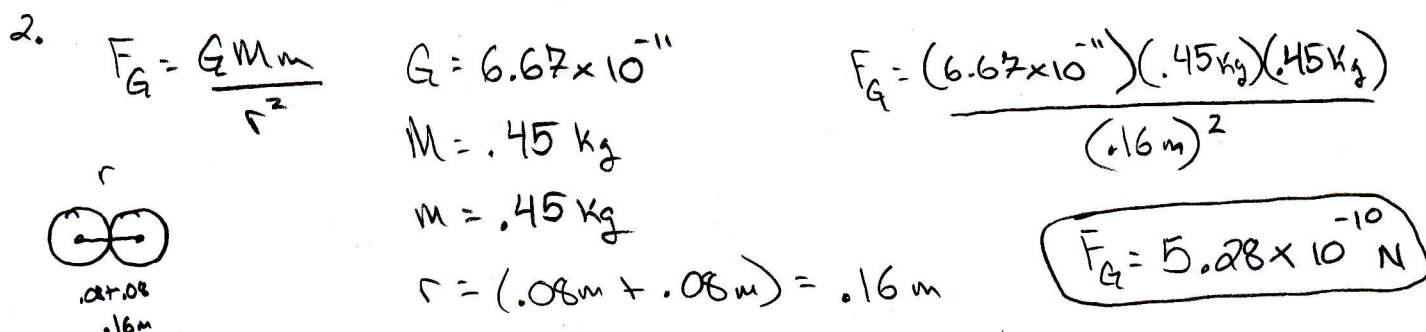 2.
F_G = GMm / r²
r
.08+.08
.16m
G = 6.67×10⁻¹¹
M = .45 kg
m = .45 kg
r = (.08m + .08m) = .16 m
F_G = (6.67×10⁻¹¹)(.45kg)(.45kg) / (.16m)²
F_G = 5.28×10⁻¹⁰ N